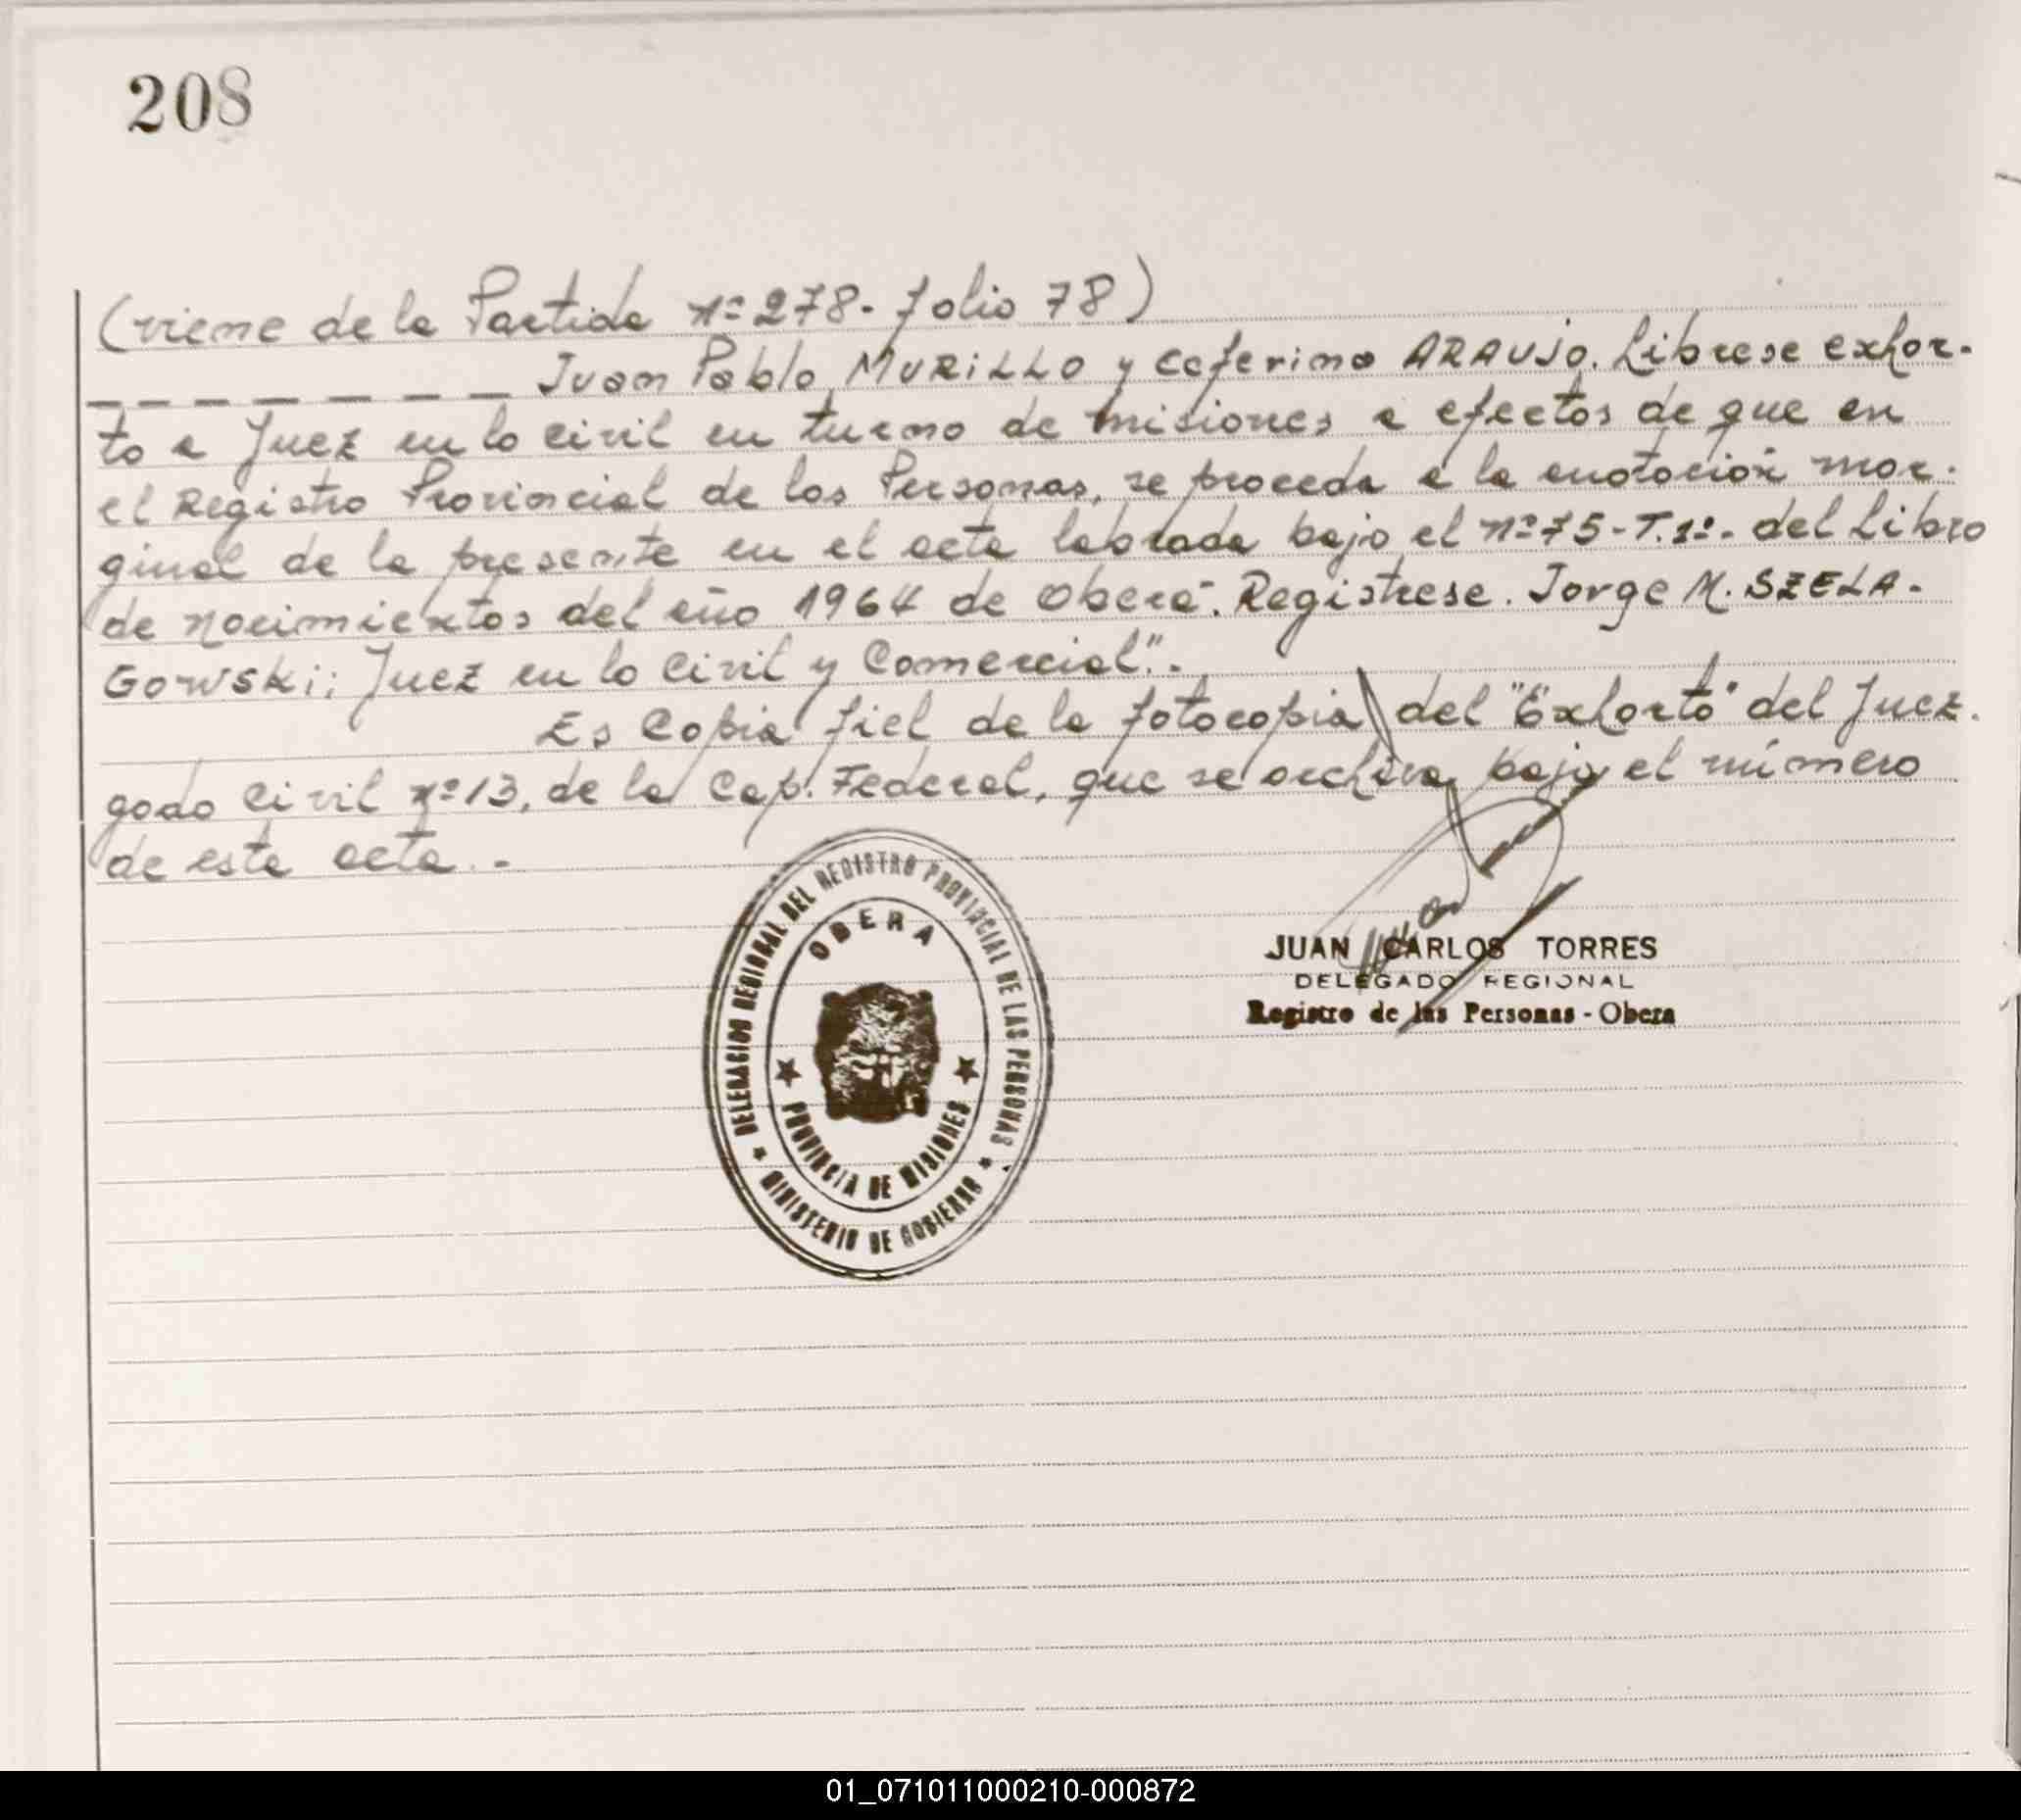 208
(viene de la Partida nº 278- folio 78)
_ _ _ _ _ _ _ _ Juan Pablo MURILLO y Ceferino ARAUJO. Librese exhor-
to a Juez en lo civil en turno de Misiones a efectos de que en
el Registro Provincial de las Personas, se proceda a la anotación mar-
ginal de la presente en el acta labrada bajo el nº 75-T.1º- del Libro
de Nacimientos del año 1964 de Oberá-. Registrese. Jorge M. SZELA-
GOWSKi; Juez en lo Civil y Comercial".-
Es Copia fiel de la fotocopia del "Exhorto" del Juez-
gado Civil nº 13, de la Cap. Federal, que se archiva bajo el número
de este acta.-
DELEGACION REGIONAL DEL REGISTRO PROVINCIAL DE LAS PERSONAS
OBERA
PROVINCIA DE MISIONES
MINISTERIO DE GOBIERNO
JUAN CARLOS TORRES
DELEGADO REGIONAL
Registro de las Personas - Obera
01_071011000210-000872